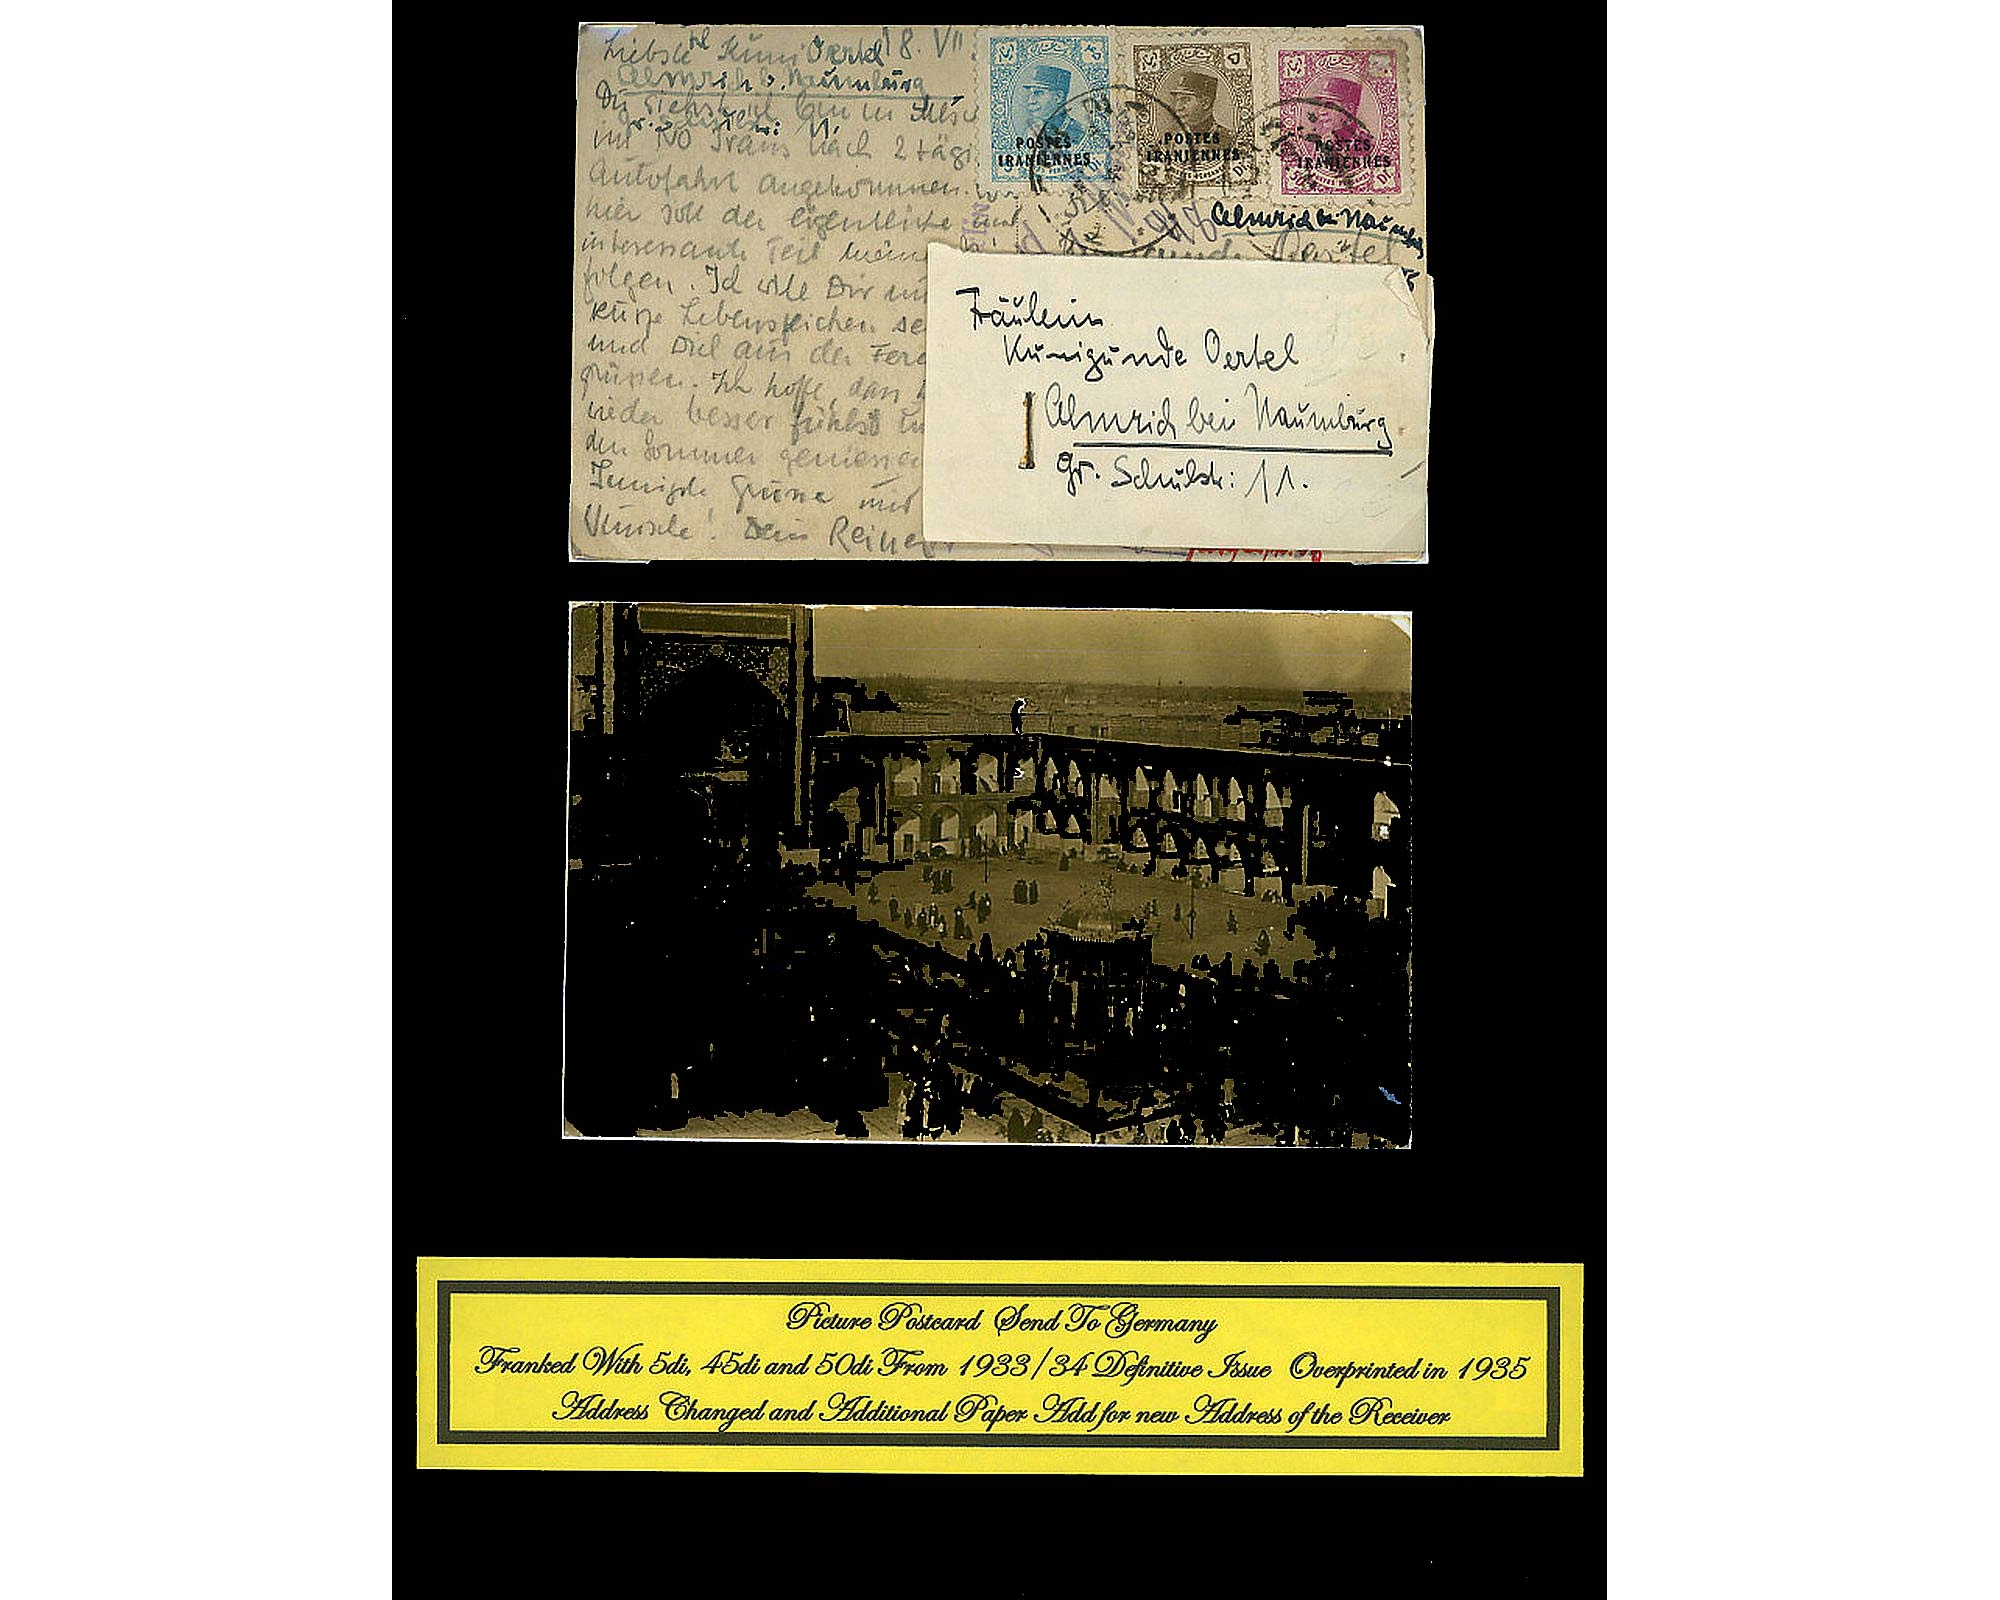 Liebste Kuni Oertel 18. VII
Almrich b. Naumburg
Du siehst ich bin in
gr. Schulstr: 11.
im NO Irans nach 2 tägi
Autofahrt angekommen.
hier soll der eigentliche und
interessante Teil meine
folgen. Ich will Dir nu
kurze Lebenszeichen se
und Dich aus der Fer
grüssen. Ich hoffe, dass
wieder besser fühlst un
den Sommer geniessen
Innigste Grüsse und
Wünsche! Dein Reiner
POSTES
IRANIENNES
POSTES
IRANIENNES
POSTES
IRANIENNES
Almrich b. Naumburg
Oertel
Fräulein
Kunigunde Oertel
Almrich bei Naumburg
gr. Schulstr: 11.
Picture Postcard Send To Germany
Franked With 5di, 45di and 50di From 1933/34 Definitive Issue Overprinted in 1935
Address Changed and Additional Paper Add for new Address of the Receiver